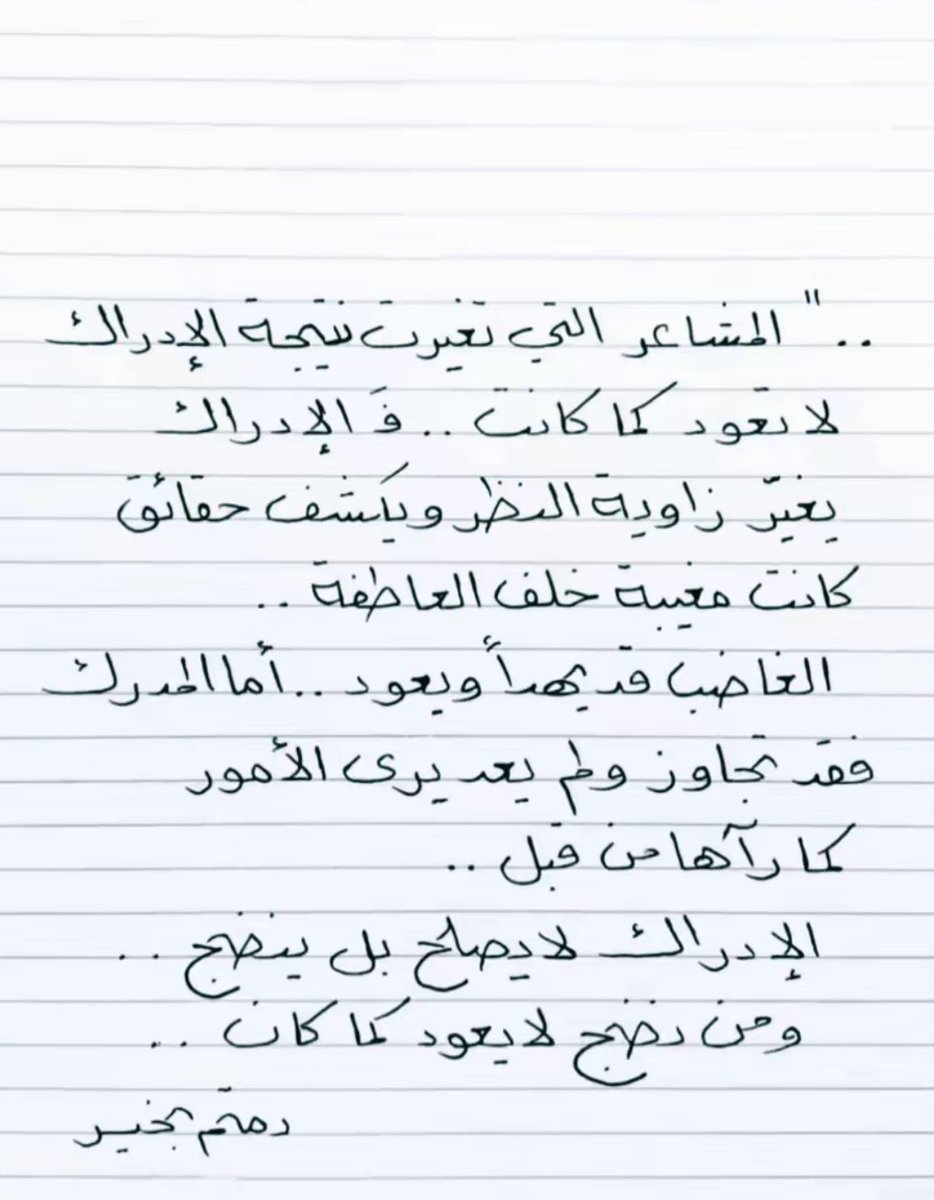 .. " المشاعر التي تغيرت نتيجة الإدراك
لا تعود كما كانت .. فَ الإدراك
يغيّر زاوية النظر ويكشف حقائق
كانت مغيبة خلف العاطفة ..
الغاضب قد يهدأ ويعود .. أما المدرك
فقد تجاوز ولم يعد يرى الأمور
كما رآها من قبل ..
الإدراك لا يصلح بل ينضج ..
ومن نضج لا يعود كما كان ..
دمتم بخير